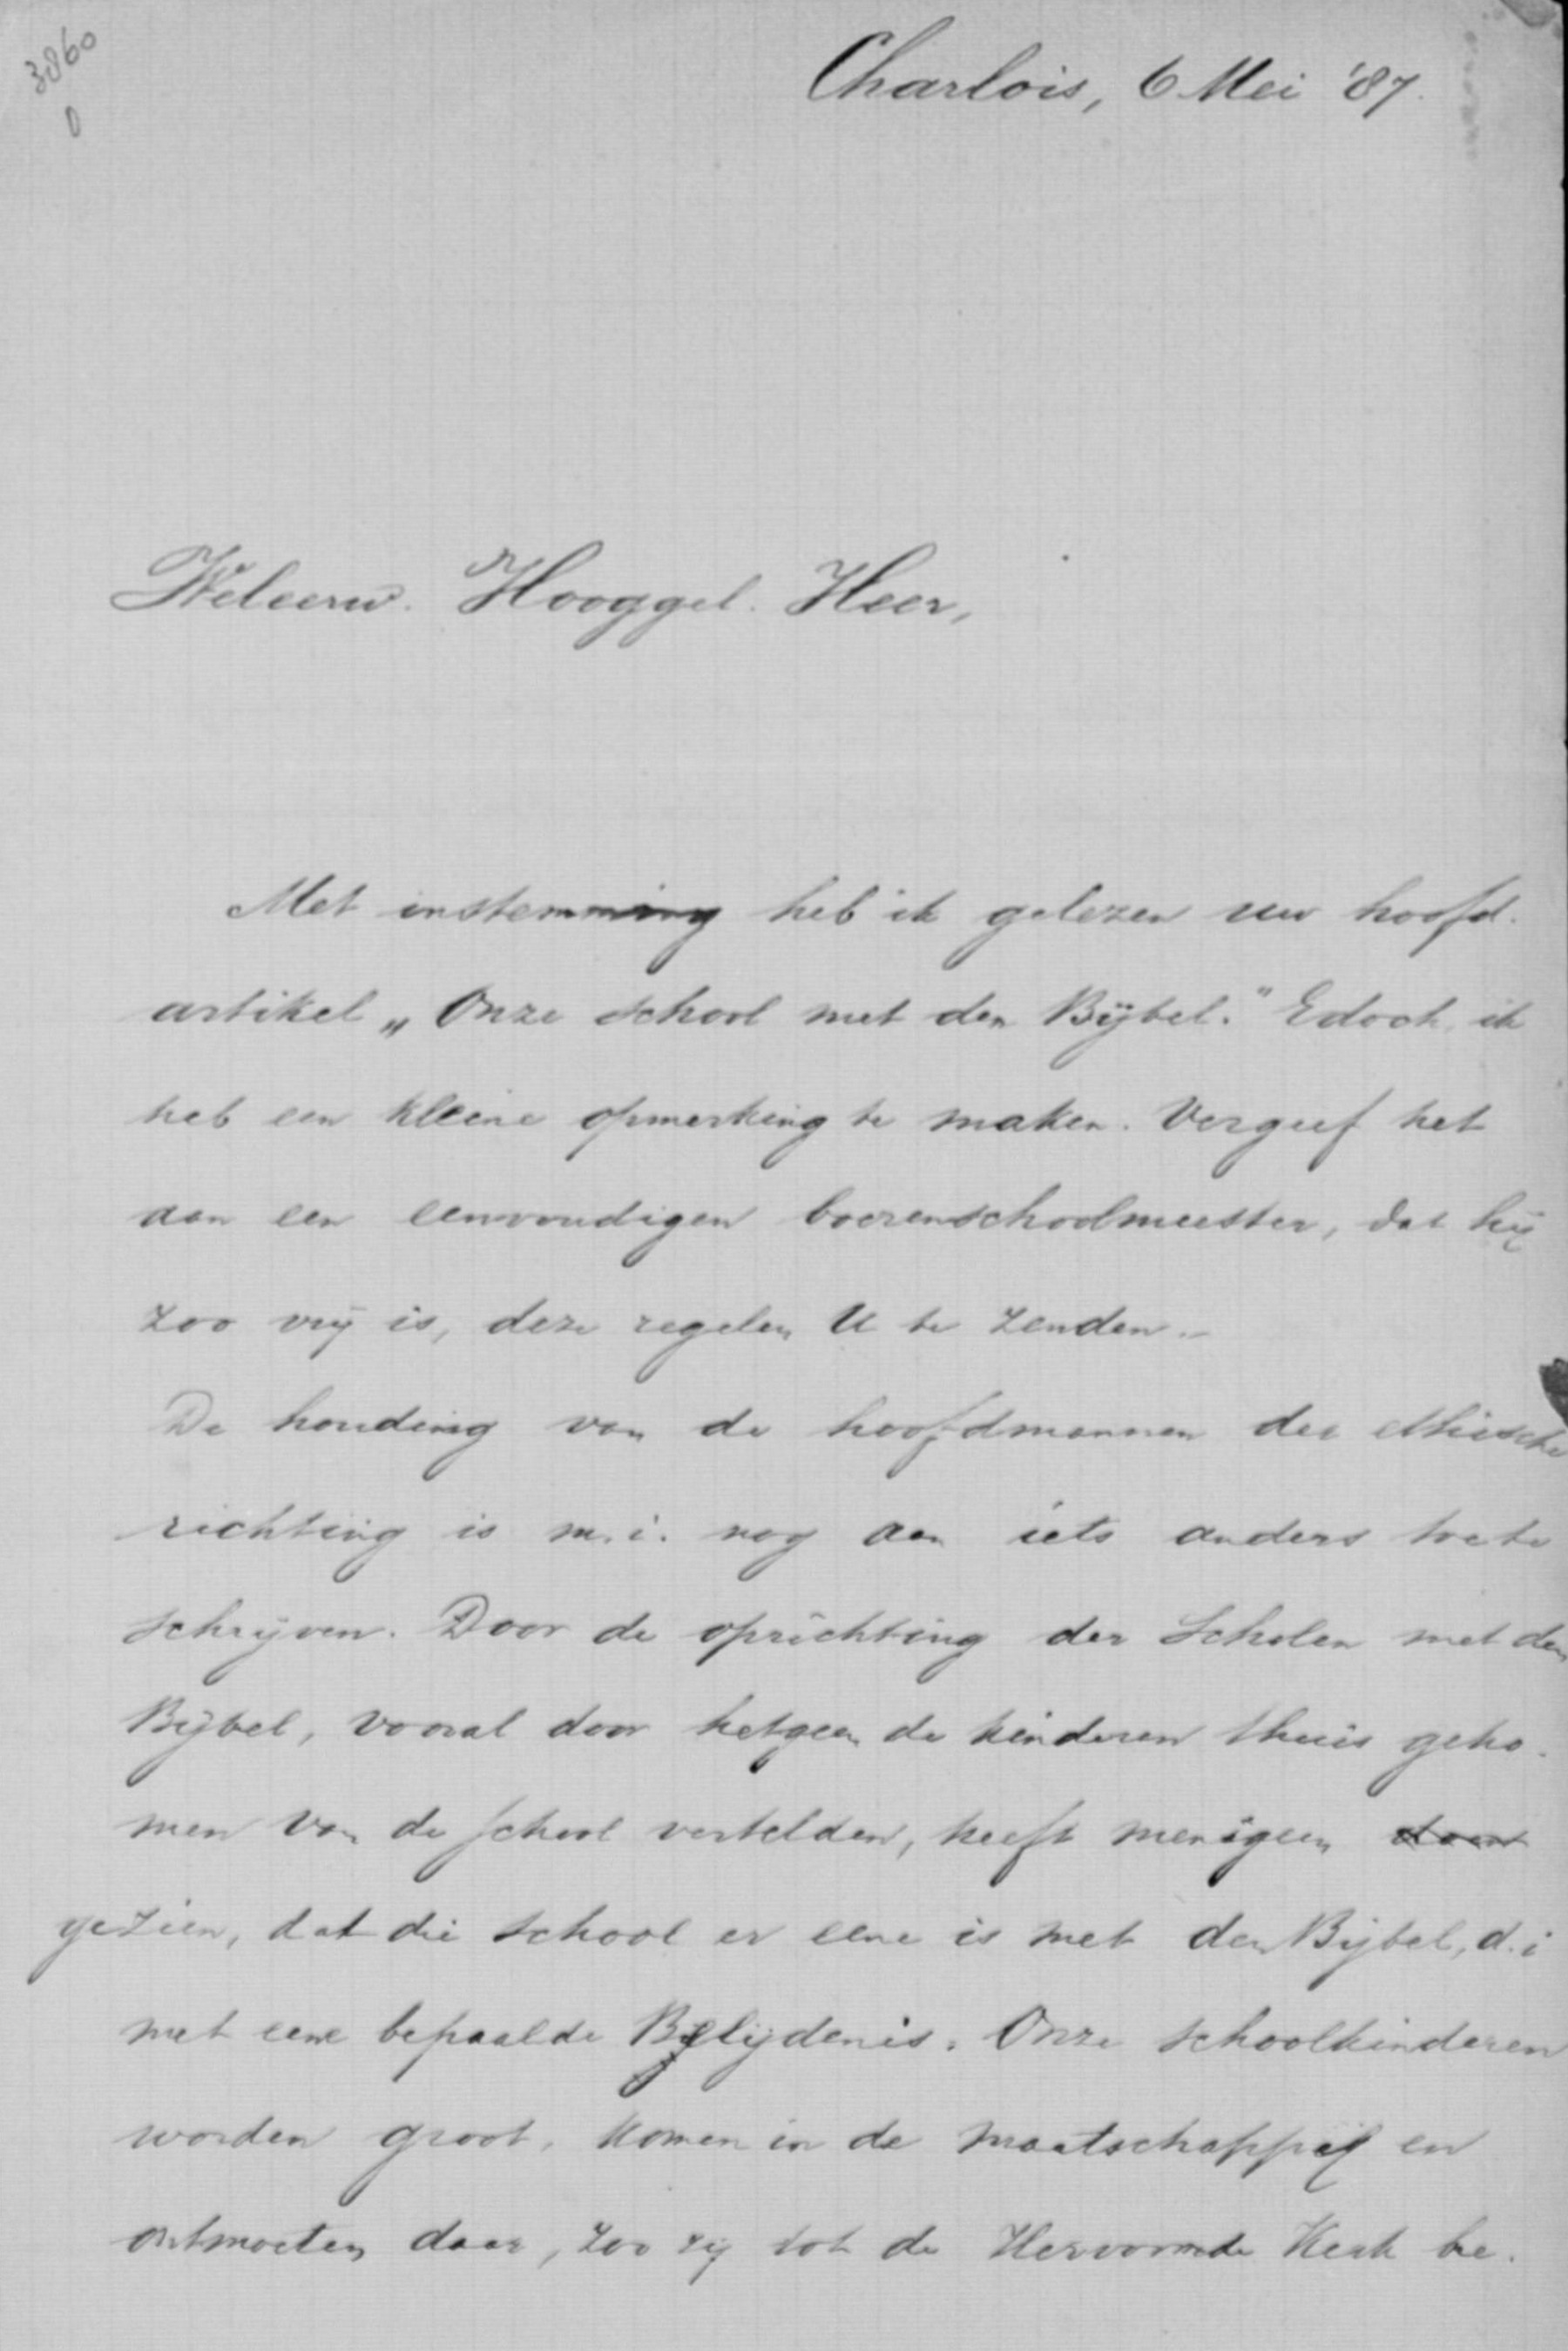 3860
0
Charlois, 6 Mei '87.
Weleerw. Hooggel. Heer,
Met instemming heb ik gelezen uw hoofd-
artikel „Onze school met den Bijbel." Edoch, ik
heb een kleine opmerking te maken. Vergeef het
aan een eenvoudigen boerenschoolmeester, dat hij
zoo vrij is, deze regelen U te zenden.-
De houding van de hoofdmannen der ethische
richting is m.i. nog aan iets anders toe te
schrijven. Door de oprichting der Scholen met den
Bijbel, vooral door hetgeen de kinderen thuis geko-
men van de school vertelden, heeft menigeen
gezien, dat die school er eene is met den Bijbel, d.i
met eene bepaalde Belijdenis. Onze schoolkinderen
worden groot, komen in de maatschappij en
ontmoeten daar, zoo zij tot de Hervormde Kerk be-